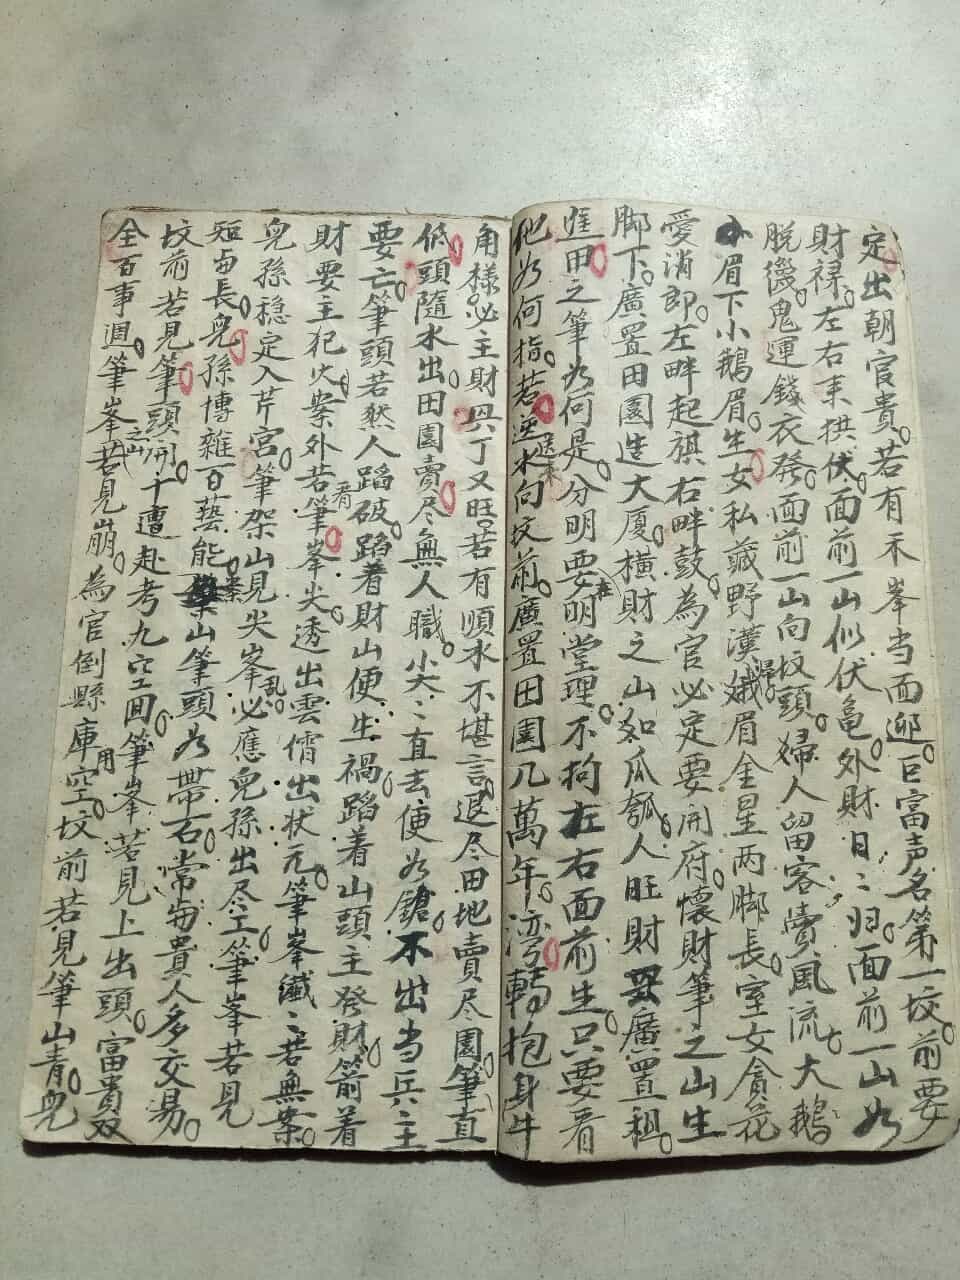 定出朝官貴若有禾峯当面迎巨富声名第一坟前要
財禄左右来拱伏面前一山似伏亀外財日〻归面前一山如
脱㡡鬼運錢衣發面前一山向坟頭婦人留客賣風流大鵝
眉下小鵝眉生女私藏野漢歸娥眉金星两脚長室女貪花
愛消郎左畔起旗右畔鼓為官必定要開府懷財筆之山生
脚下廣置田園造大厦橫財之山如瓜瓠人旺財丑廣置租
進田之筆為何是分明要在明堂理不拘左右面前生只要看
他如何指若逆水送來向坟前廣置田園几萬年湾轉抱身牛
角樣必主財興丁又旺若有順水不堪言退尽田地賣尽園筆直
低頭隨水出田園賣尽無人職尖〻直去便如鎗不出当兵主
要亡筆頭若然人蹈破蹈着財山便生禍蹈着山頭主發財箭着
財要主犯火案外若看筆峯尖透出雲僐出状元筆峯纖〻若無案
兒孫稳定入芹宮筆架山見尖峯乱必應兒孫出尽工筆峯若見
短与長兒孫博雜百藝能案山筆頭如帶石常与貴人多交易
坟前若見筆頭開千遭赴考九空囬筆峯若見上出頭富貴双
全百事週筆峯之山若見崩為官倒縣庫用空坟前若見筆山青兒